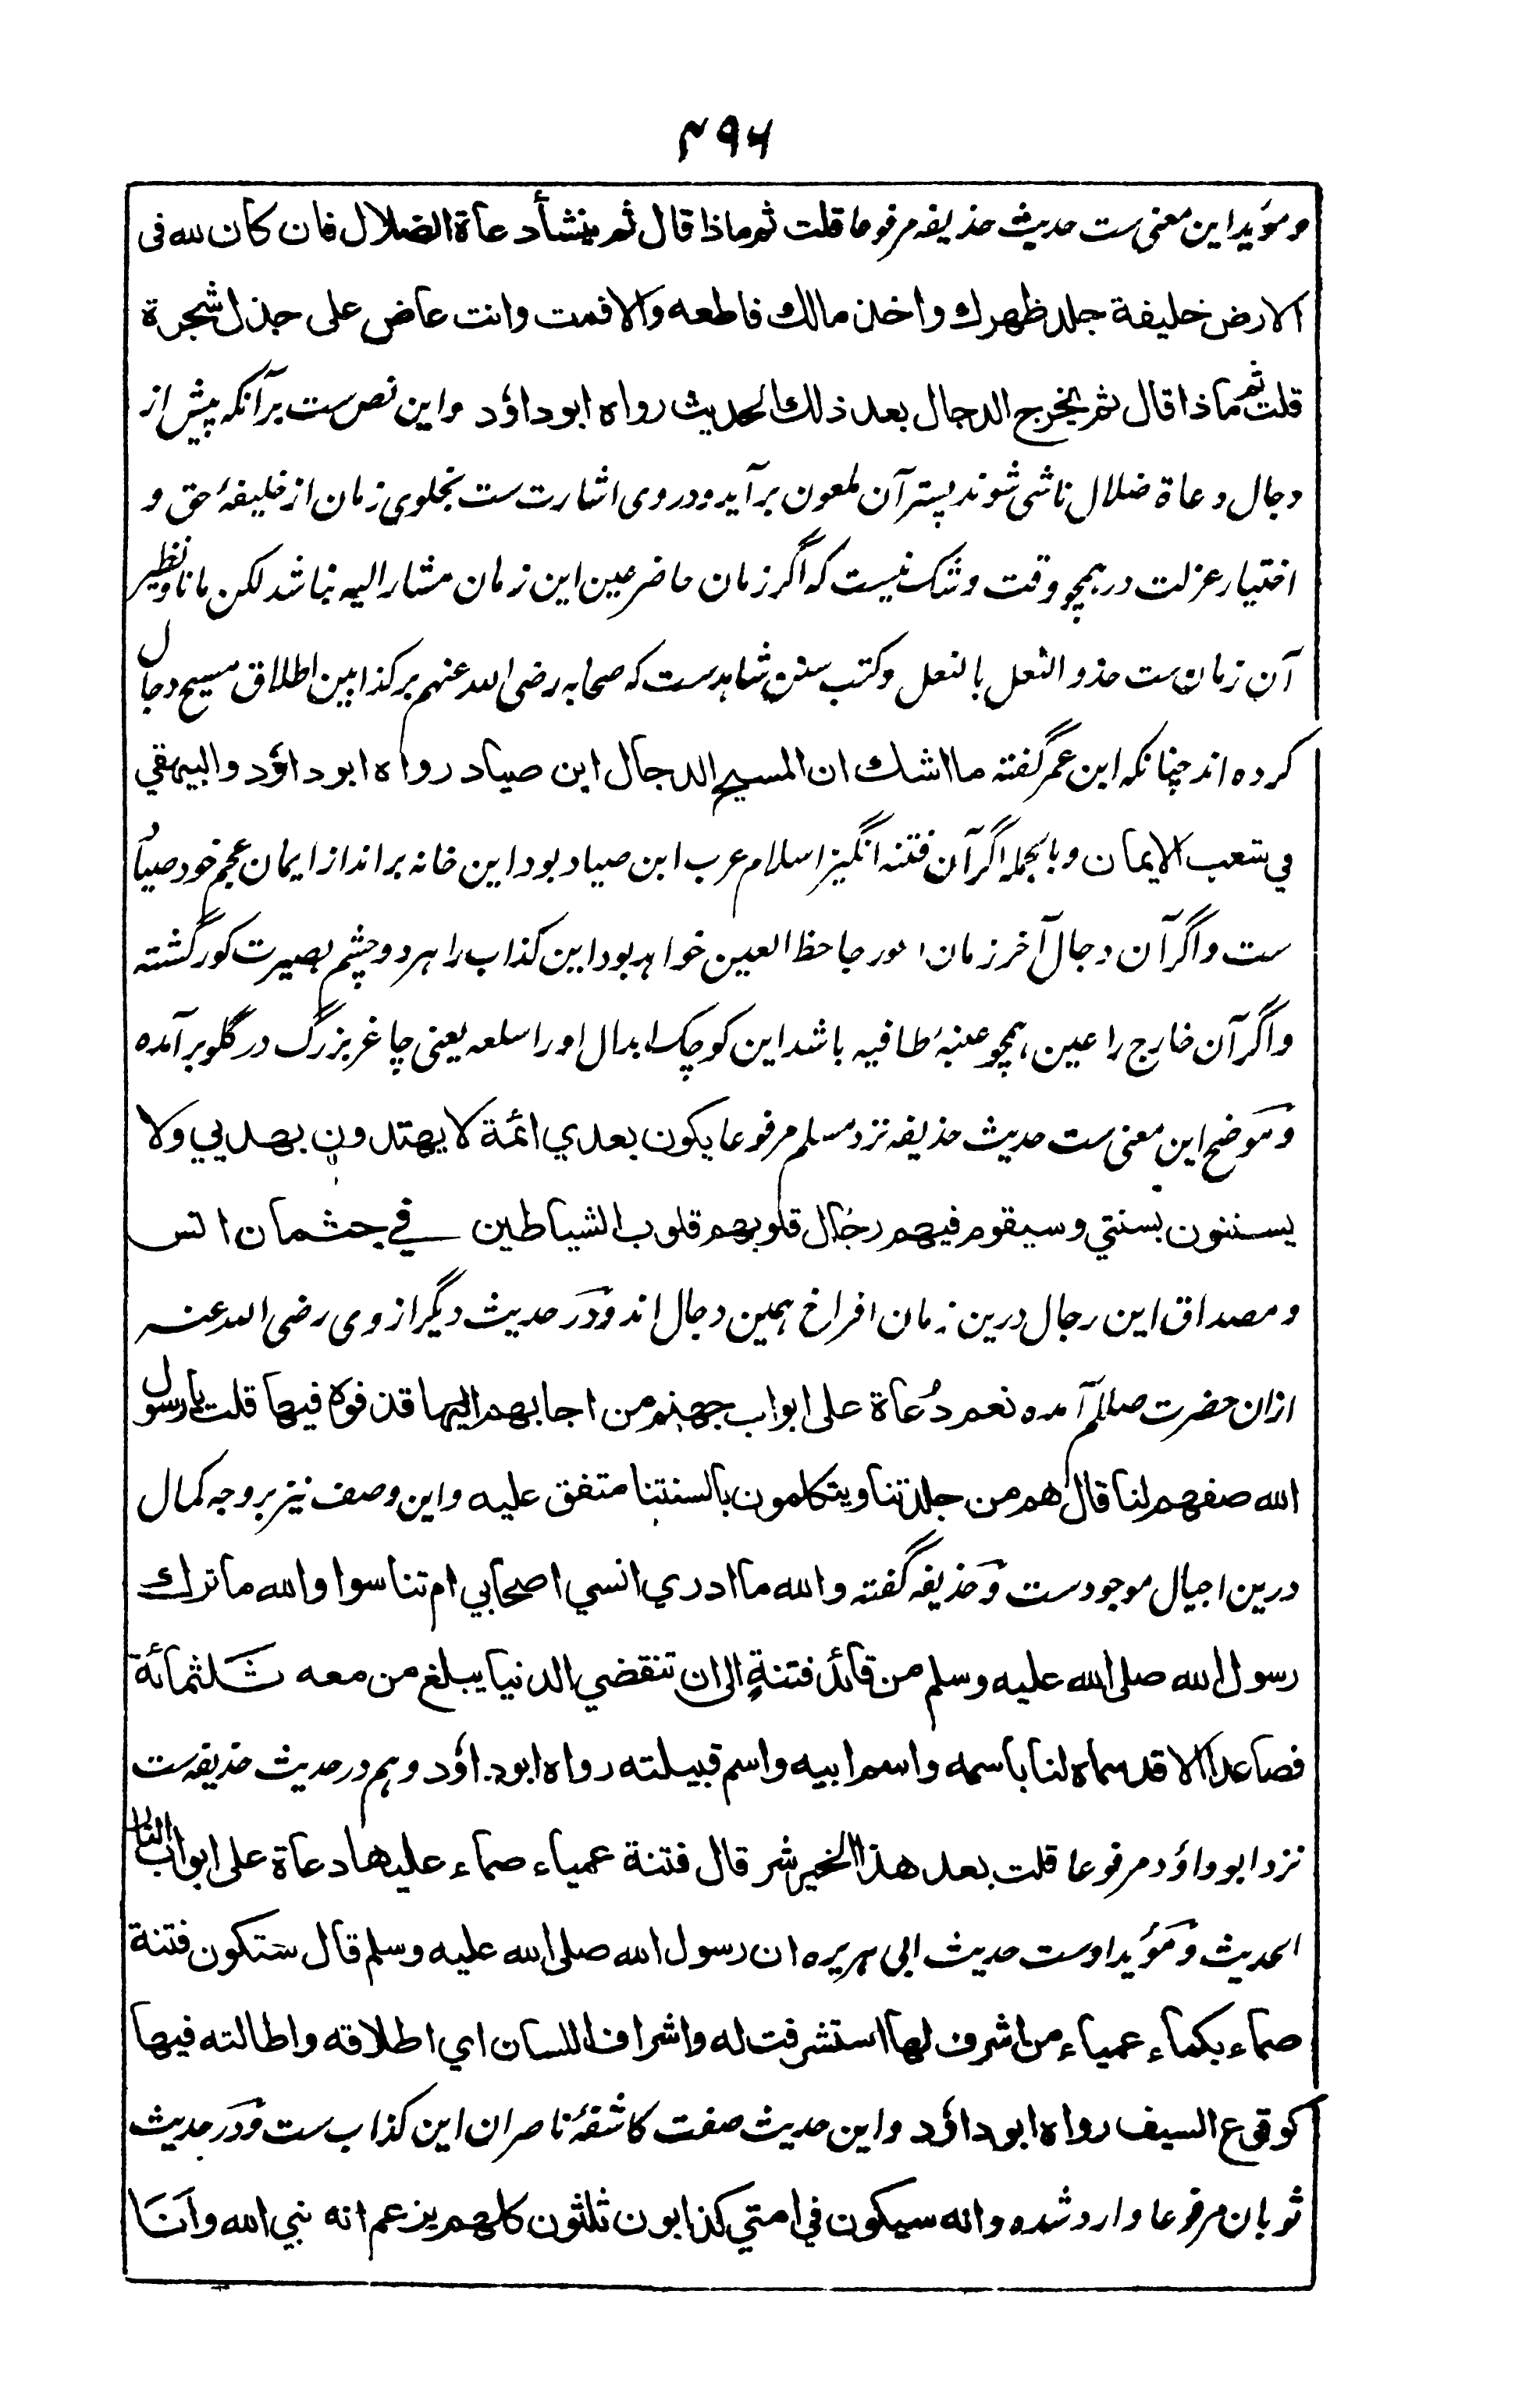 ۴۹۶
و مؤید این معنی ست حدیث حذیفه مرفوعا قلت ثم ماذا قال ثم ینشأ دعاة الضلال فان کان لله فی
الارض خلیفة جلد ظهرك واخذ مالك فاطعه والا فمت وانت عاض علی جذل شجرة
قلت ثم ماذا قال ثم یخرج الدجال بعد ذلك الحدیث رواه ابوداؤد واین نص ست برآنکه پیش از
دجال دعاة ضلال ناشی شوند پستر آن لمعون برآید و در وی اشارت ست بخلوی زمان از خلیفۂ حق و
اختیار عزلت در همچو وقت و شک نیست که اگر زمان حاضر عین این زمان مشار الیه نباشد لکن مانا و نظیر
آن زمان ست حذو النعل بالنعل و کتب سنن شاهدست که صحابه رضی الله عنهم بر کذابین اطلاق مسیح دجال
کرده اند چنانکه ابن عمر گفته ما اشك ان المسیح الدجال ابن صیاد رواه ابوداؤد والبیهقي
في شعب الایمان و بالجمله اگر آن فتنه انگیز اسلام عرب ابن صیاد بود این خانه برانداز ایمان عجم خود صیاد
ست و اگر آن دجال آخر زمان اعور جاحظ العین خواهد بود این کذاب را هر دو چشم بصیرت کور گشته
و اگر آن خارج را عین همچو عنبۂ طافیه باشد این کوچک ابدال او را سلعه یعنی چاغر بزرگ در گلو برآمده
و موضح این معنی ست حدیث حذیفه نزد مسلم مرفوعا یکون بعدي ائمة لا یهتدون بهدیي ولا
یستنون بسنتي وسیقوم فیهم رجال قلوبهم قلوب الشیاطین في جثمان انس
و مصداق این رجال درین زمان افراخ همین دجال اند و در حدیث دیگر از وی رضی الله عنه
ازان حضرت صللم آمده نعم دُعاة علی ابواب جهنم من اجابهم الیها قذفوه فیها قلت یا رسول
الله صفهم لنا قال هم من جلدتنا ویتکلمون بالسنتنا متفق علیه واین وصف نیز بر وجه کمال
درین اجیال موجودست و حذیفه گفته والله ما ادري انسي اصحابي ام تناسوا والله ما ترك
رسول الله صلی الله علیه وسلم من قائد فتنةٍ الی ان تنقضي الدنیا یبلغ من معه ثلثمائة
فصاعدا الا قد سماه لنا باسمه واسم ابیه واسم قبیلته رواه ابوداؤد و هم در حدیث حذیفه ست
نزد ابوداؤد مرفوعا قلت بعد هذا الخیر شر قال فتنة عمیاء صماء علیها دعاة علی ابواب النار
الحدیث و مؤید اوست حدیث ابی هریره ان رسول الله صلی الله علیه وسلم قال ستکون فتنة
صماء بکماء عمیاء من اشرف لها استشرفت له واشراف اللسان اي اطلاقه واطالته فیها
کوقوع السیف رواه ابوداؤد واین حدیث صفت کاشفۂ ناصران این کذاب ست و در حدیث
ثوبان مرفوعا وارد شده وانه سیکون في امتي کذابون ثلثون کلهم یزعم انه نبي الله وأنا